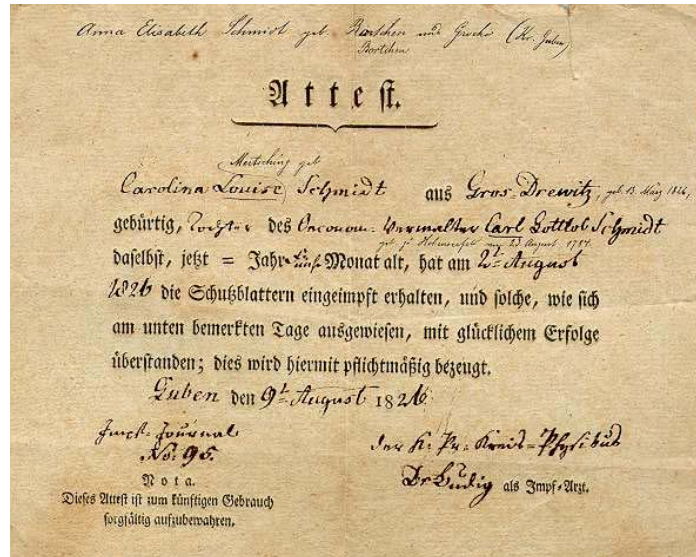 Anna Elisabeth Schmidt geb. Bartchen und Grocho (Kr. Guben)
Bortchen
Attest.
Mertsching geb
Carolina Louise Schmidt aus Gros-Drewitz, geb. 13. März 1826,
gebürtig, Tochter des Oeconom-Verwalter Carl Gottlob Schmidt
geb. zu am 23 August 1784
daselbst, jetzt = Jahr Monat alt, hat am 2t August
1826 die Schutzblattern eingeimpft erhalten, und solche, wie sich
am unten bemerkten Tage ausgewiesen, mit glücklichem Erfolge
überstanden; dies wird hiermit pflichtmäßig bezeugt.
Guben den 9t August 1826
Impf-Journal
No: 95.
der K. Pr. Kreis-Physikus
Dr Gudig als Impf-Arzt.
Nota.
Dieses Attest ist zum künftigen Gebrauch
sorgfältig aufzubewahren.